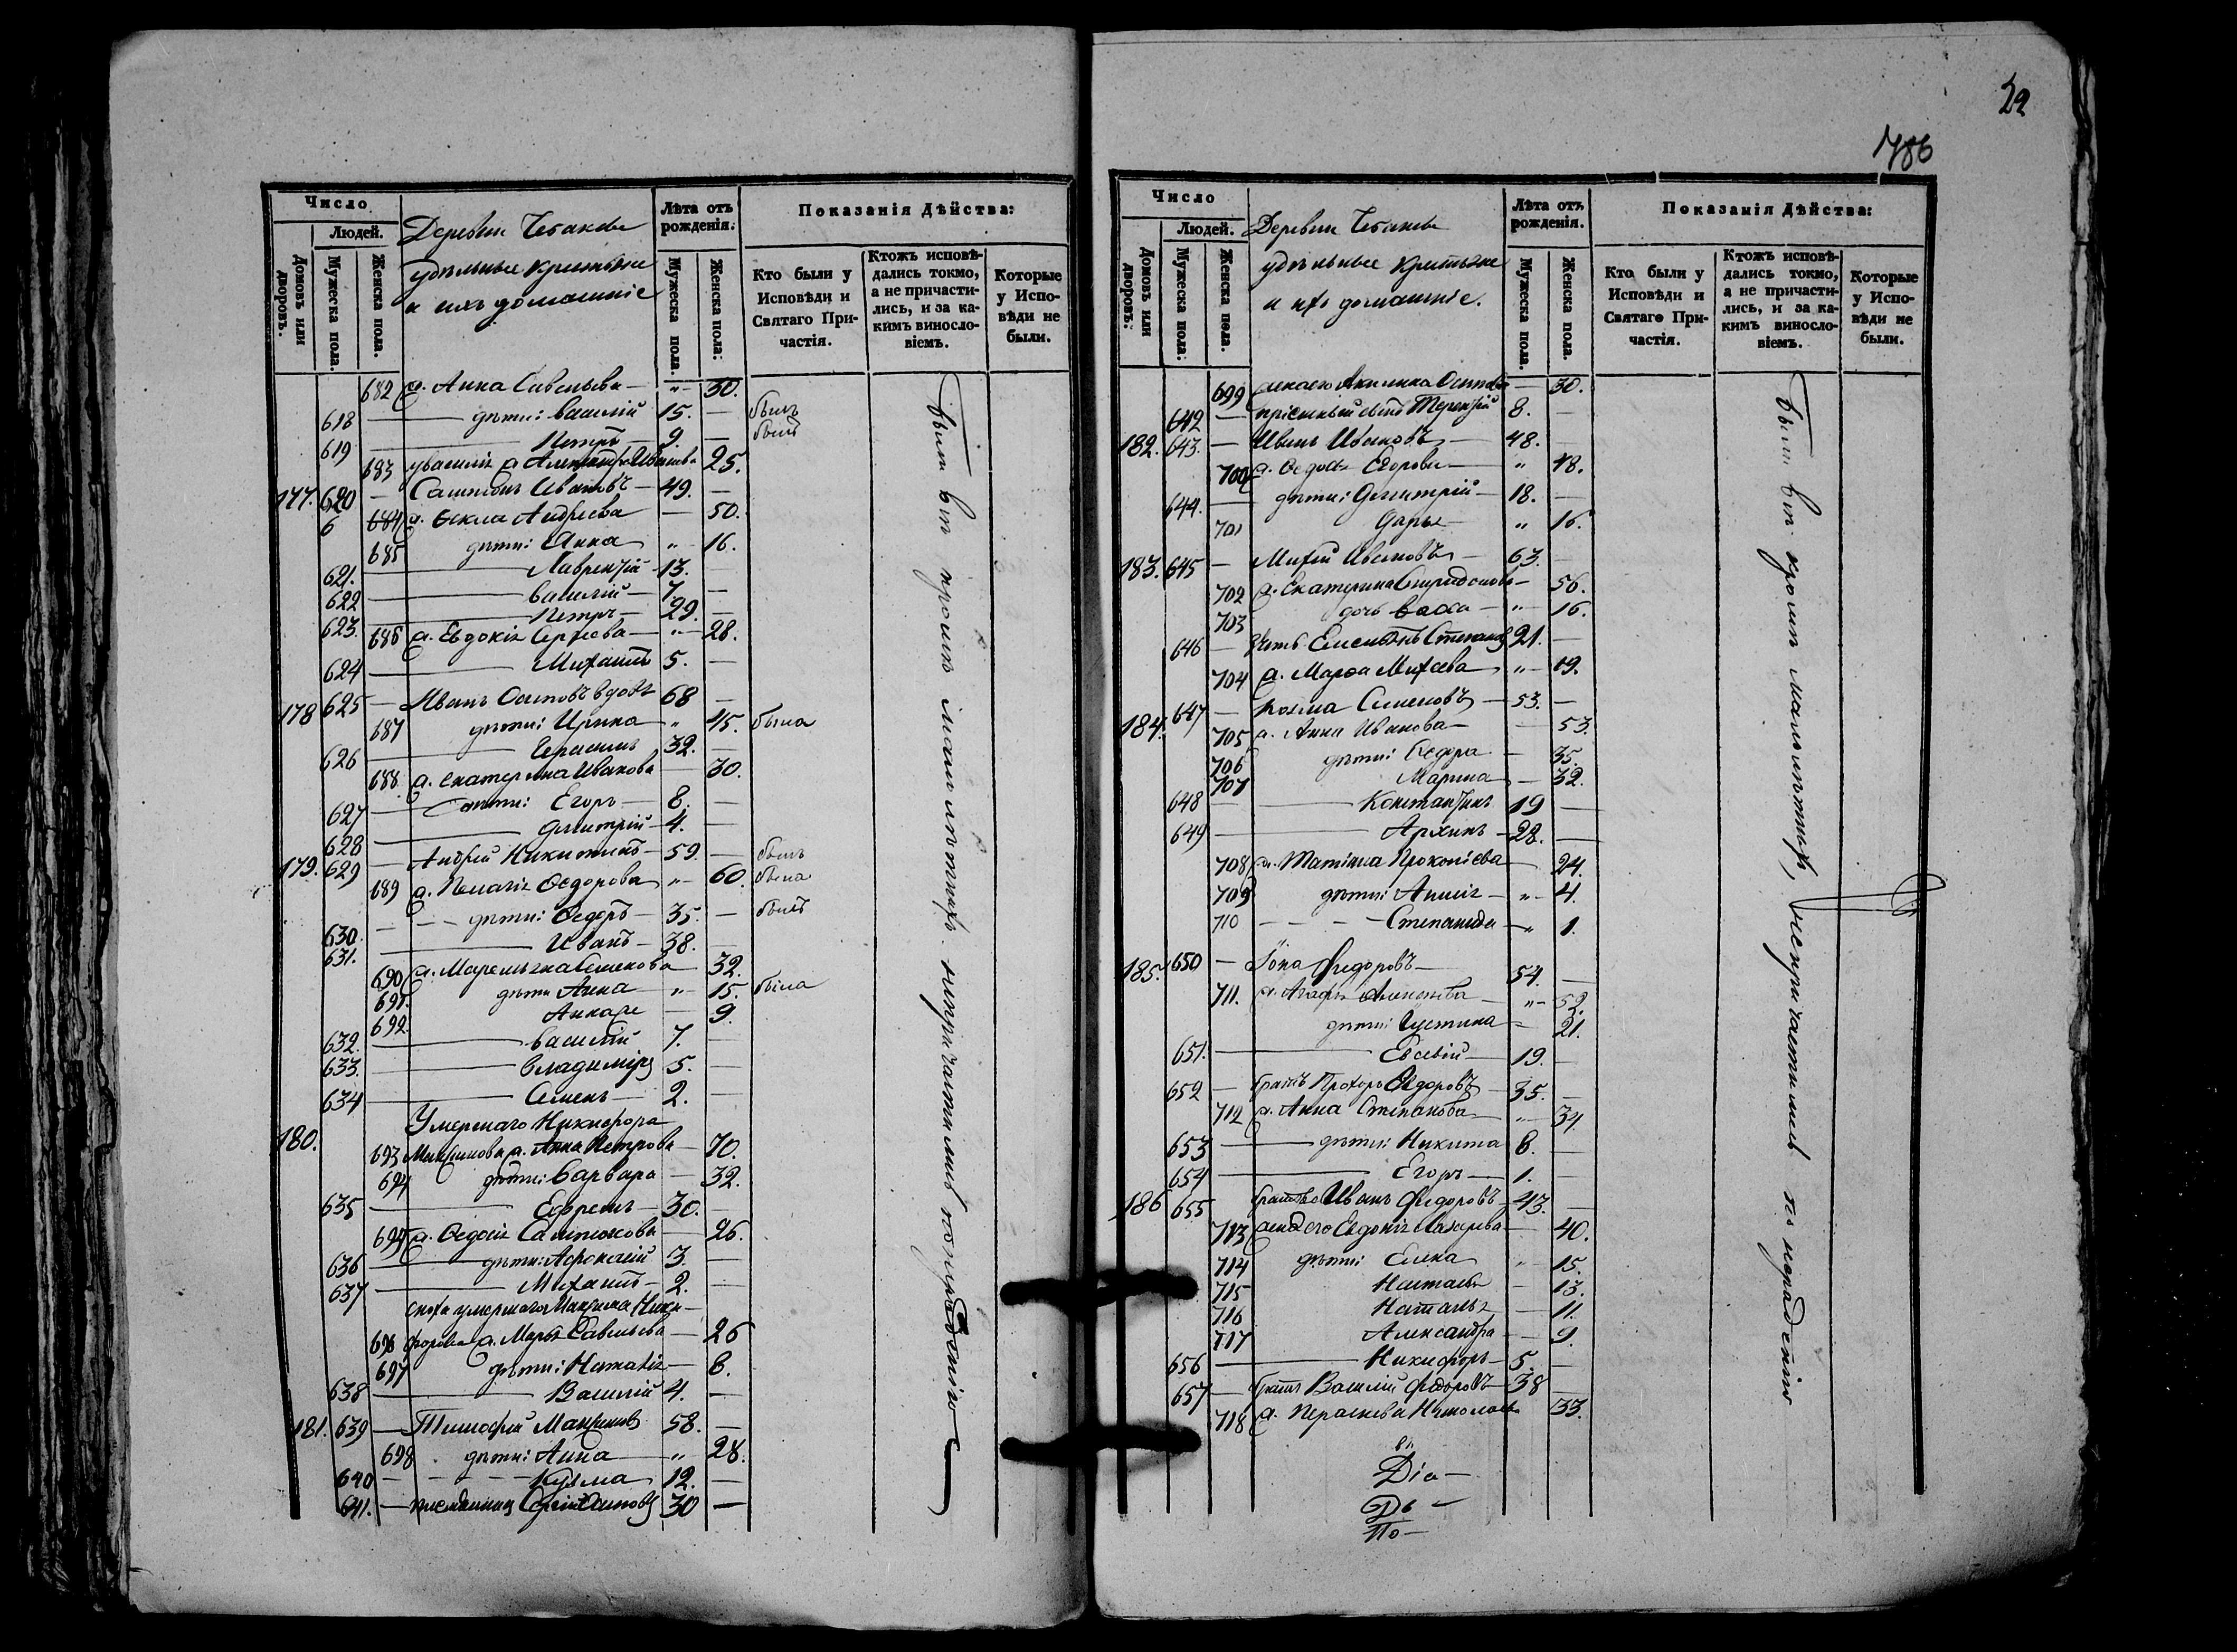 Число
Людей.
Домовъ или дворовъ.
Мужеска пола.
Женска пола.
Деревни Чебаков
удѣльные крестьяне
и ихъ домашніе
Лѣта отъ рожденія.
Мужеска пола.
Женска пола.
Показанія Дѣйства:
Кто были у Исповѣди и Святаго Причастія.
Ктожъ исповѣдались токмо, а не причастились, и за какимъ винословіемъ.
Которые у Исповѣди не были.
682 ж. Анна Савельева — „ — 30.
618 — дѣти: Василій 15. — былъ
619 — Петръ — 9. — былъ
683 у Василія ж. Александра Иванова 25.
177. 620 — Сампсонъ Ивановъ — 49. —
6 684 ж. Ѳекла Андреева — 50.
685 дѣти: Анна „ 16.
621. — Лаврентій — 13.
622 — Василій — 7. —
623. — Петръ — 29. —
686 ж. Евдокія Сергѣева — „ — 28.
624 — Михаилъ 5. —
178 625 — Иванъ Осиповъ вдовъ 68 —
687 дѣти: Ирина — „ 45. была
626 — Герасимъ 32. —
688 ж. Екатерина Иванова — 30.
627 — дѣти: Егоръ — 8. —
628 — Дмитрій — 4. —
179. 629 — Андрей Никитинъ — 59. — былъ
689 ж. Пелагія Ѳедорова „ — 60. была
630. — дѣти: Ѳедоръ — 35. — былъ
631. — Иванъ — 38. —
690 ж. Маремьяна Семенова 32.
691. дѣти Анна — „ — 15. была
692. — 9.
632. — Василій 7. —
633. — Владиміръ 5. —
634 — Семенъ — 2. —
180. Умершаго Никифора
693 Максимова ж. Анна Петрова — 70.
694 дѣти: Варвара — 32.
635 — Ефремъ — 30. —
695 ж. Ѳедосія Сампсонова — 26.
636 — дѣти: Афонасій 3. —
637 — Михаилъ — 2. —
сноха умершаго Максима Ники-
696 форова ж. Марья Савельева — 26
697 дѣти: Наталія — 8.
638 — Василій 4. —
181. 639 — Тимофей Максимовъ 58. —
698 дѣти: Анна — „ 28.
640 — Кузма 12. —
641. — племянникъ Сергій Осиповъ 30 —
были всѣ кромѣ малолѣтнихъ, непричастились по нерадѣнію
22
786
Число
Людей.
Домовъ или дворовъ:
Мужеска пола:
Женска пола.
Деревни Чебаков
удѣльные крестьяне
и ихъ домашніе.
Лѣта отъ рожденія.
Мужеска пола.
Женска пола.
Показанія Дѣйства:
Кто были у Исповѣди и Святаго Причастія.
Ктожъ исповѣдались токмо, а не причастились, и за какимъ винословіемъ.
Которые у Исповѣди не были.
699 жена его Акилина Осипова — 30.
642 — пріемный сынъ Терентій 8. —
182. 643. — Иванъ Ивановъ — 48. —
700 ж. Ѳедосья Егорова — „ 48.
644. — дѣти: Дмитрій — 18. —
701 Дарья — „ 16.
183. 645 — Михей Ивановъ — 63. —
702 ж. Екатерина Спиридонова — 56.
703 дочь Васса — „ 16.
646 — зять Емельянъ Степановъ 21. —
704 ж. Марѳа Михеева „ 19.
184. 647 — Козма Семеновъ — 53. —
705 ж. Анна Иванова — 53.
706 дѣти: Ѳедора — 35.
707 Марина — 32.
648 — Константинъ 19 —
649 — Архипъ — 28. —
708 ж. Татіана Прокопіева — 24.
709 дѣти: — „ — 4.
710 — Степанида — „ 1.
185. 650 — Іона Федоровъ — 54. —
711. ж. Агафья Алексѣева — „ — 52.
дѣти: Устина — 21.
651. — Евсевій — 19. —
652 — братъ Прохоръ Ѳедоровъ 35. —
712 ж. Анна Степанова „ — 34.
653 — дѣти: Никита 8. —
654 — Егоръ — 1. —
186 655 братъ его Иванъ Федоровъ 43. —
713 жена его Евдокія Лазарева — 40.
714 дѣти: Елена „ 15.
715 Наталья — 13.
716 Наталья — 11.
717 Александра — 9.
656 — Никифоръ — 5. —
657 — братъ Василій Федоровъ — 38
718 ж. Параскева Николаева 33.
Діа —
По —
были всѣ кромѣ малолѣтнихъ, непричастились по нерадѣнію